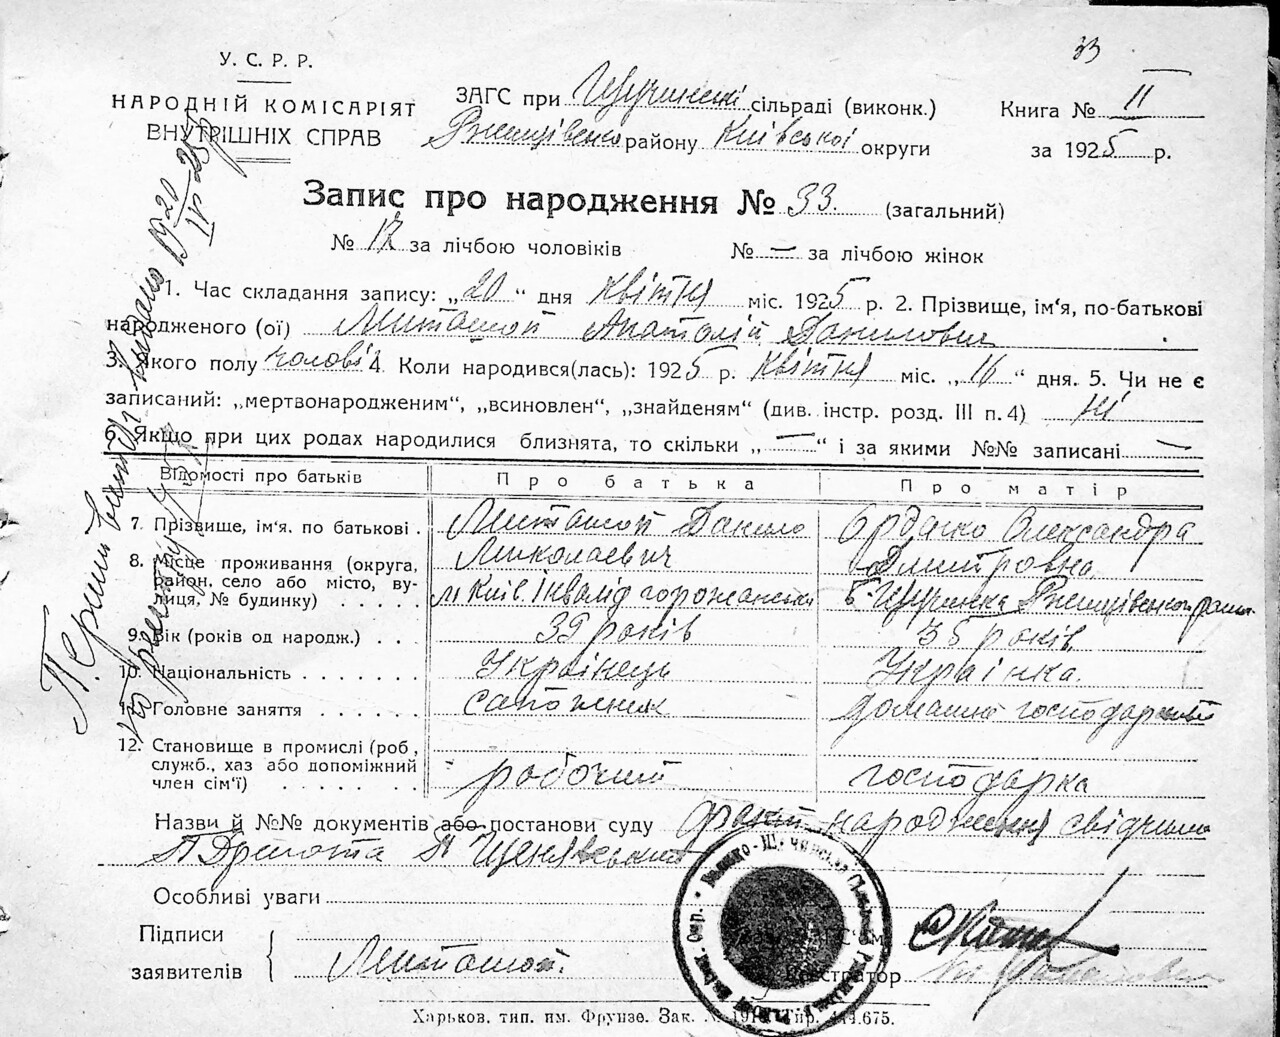 33
У. С. Р. Р.
НАРОДНІЙ КОМІСАРІЯТ
ВНУТРІШНІХ СПРАВ
ЗАГС при сільраді (виконк.)
району Київської округи
Книга № II
за 1925 р.
Запис про народження № 33. (загальний)
№ 17 за лічбою чоловіків № — за лічбою жінок
1. Час складання запису: „20“ дня Квітня міс. 1925 р. 2. Прізвище, ім'я, по-батькові
народженого (ої) Анатолій Данилович
3. Якого полу чолові 4. Коли народився(лась): 1925 р. Квітня міс. „16“ дня. 5. Чи не є
записаний: „мертвонародженим“, „всиновлен“, „знайденям“ (див. інстр. розд. III п. 4) Ні
6. Якщо при цих родах народилися близнята, то скільки „—“ і за якими №№ записані —
Відомості про батьків Про батька Про матір
7. Прізвище, ім'я. по батькові . Данило Олександра
Миколаевич Дмитровна
8. Місце проживання (округа,
район, село або місто, ву-
лиця, № будинку) . . . . . м Київ Інвалід
9. Вік (років од народж.) . . 39 років 35 років
10. Національність . . . . . . . Українець Українка.
11. Головне заняття . . . . . . сапожник домашнє
12. Становище в промислі (роб,
служб., хаз або допоміжний
член сім'ї) . . . . . . . робочий господарка
Назви й №№ документів або постанови суду факт народження свідчили
Особливі уваги
Підписи
заявителів
Реєстратор
Харьков, тип. им. Фрунзе. Зак.
Перший витяг видано
20
IV-25 р